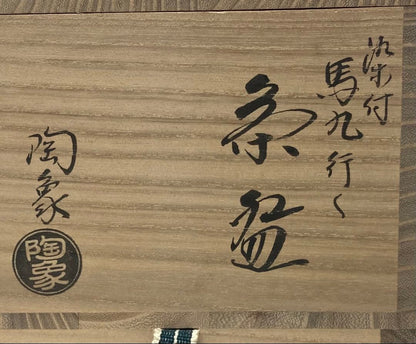 染付
馬九行く
茶盌
陶象
陶象